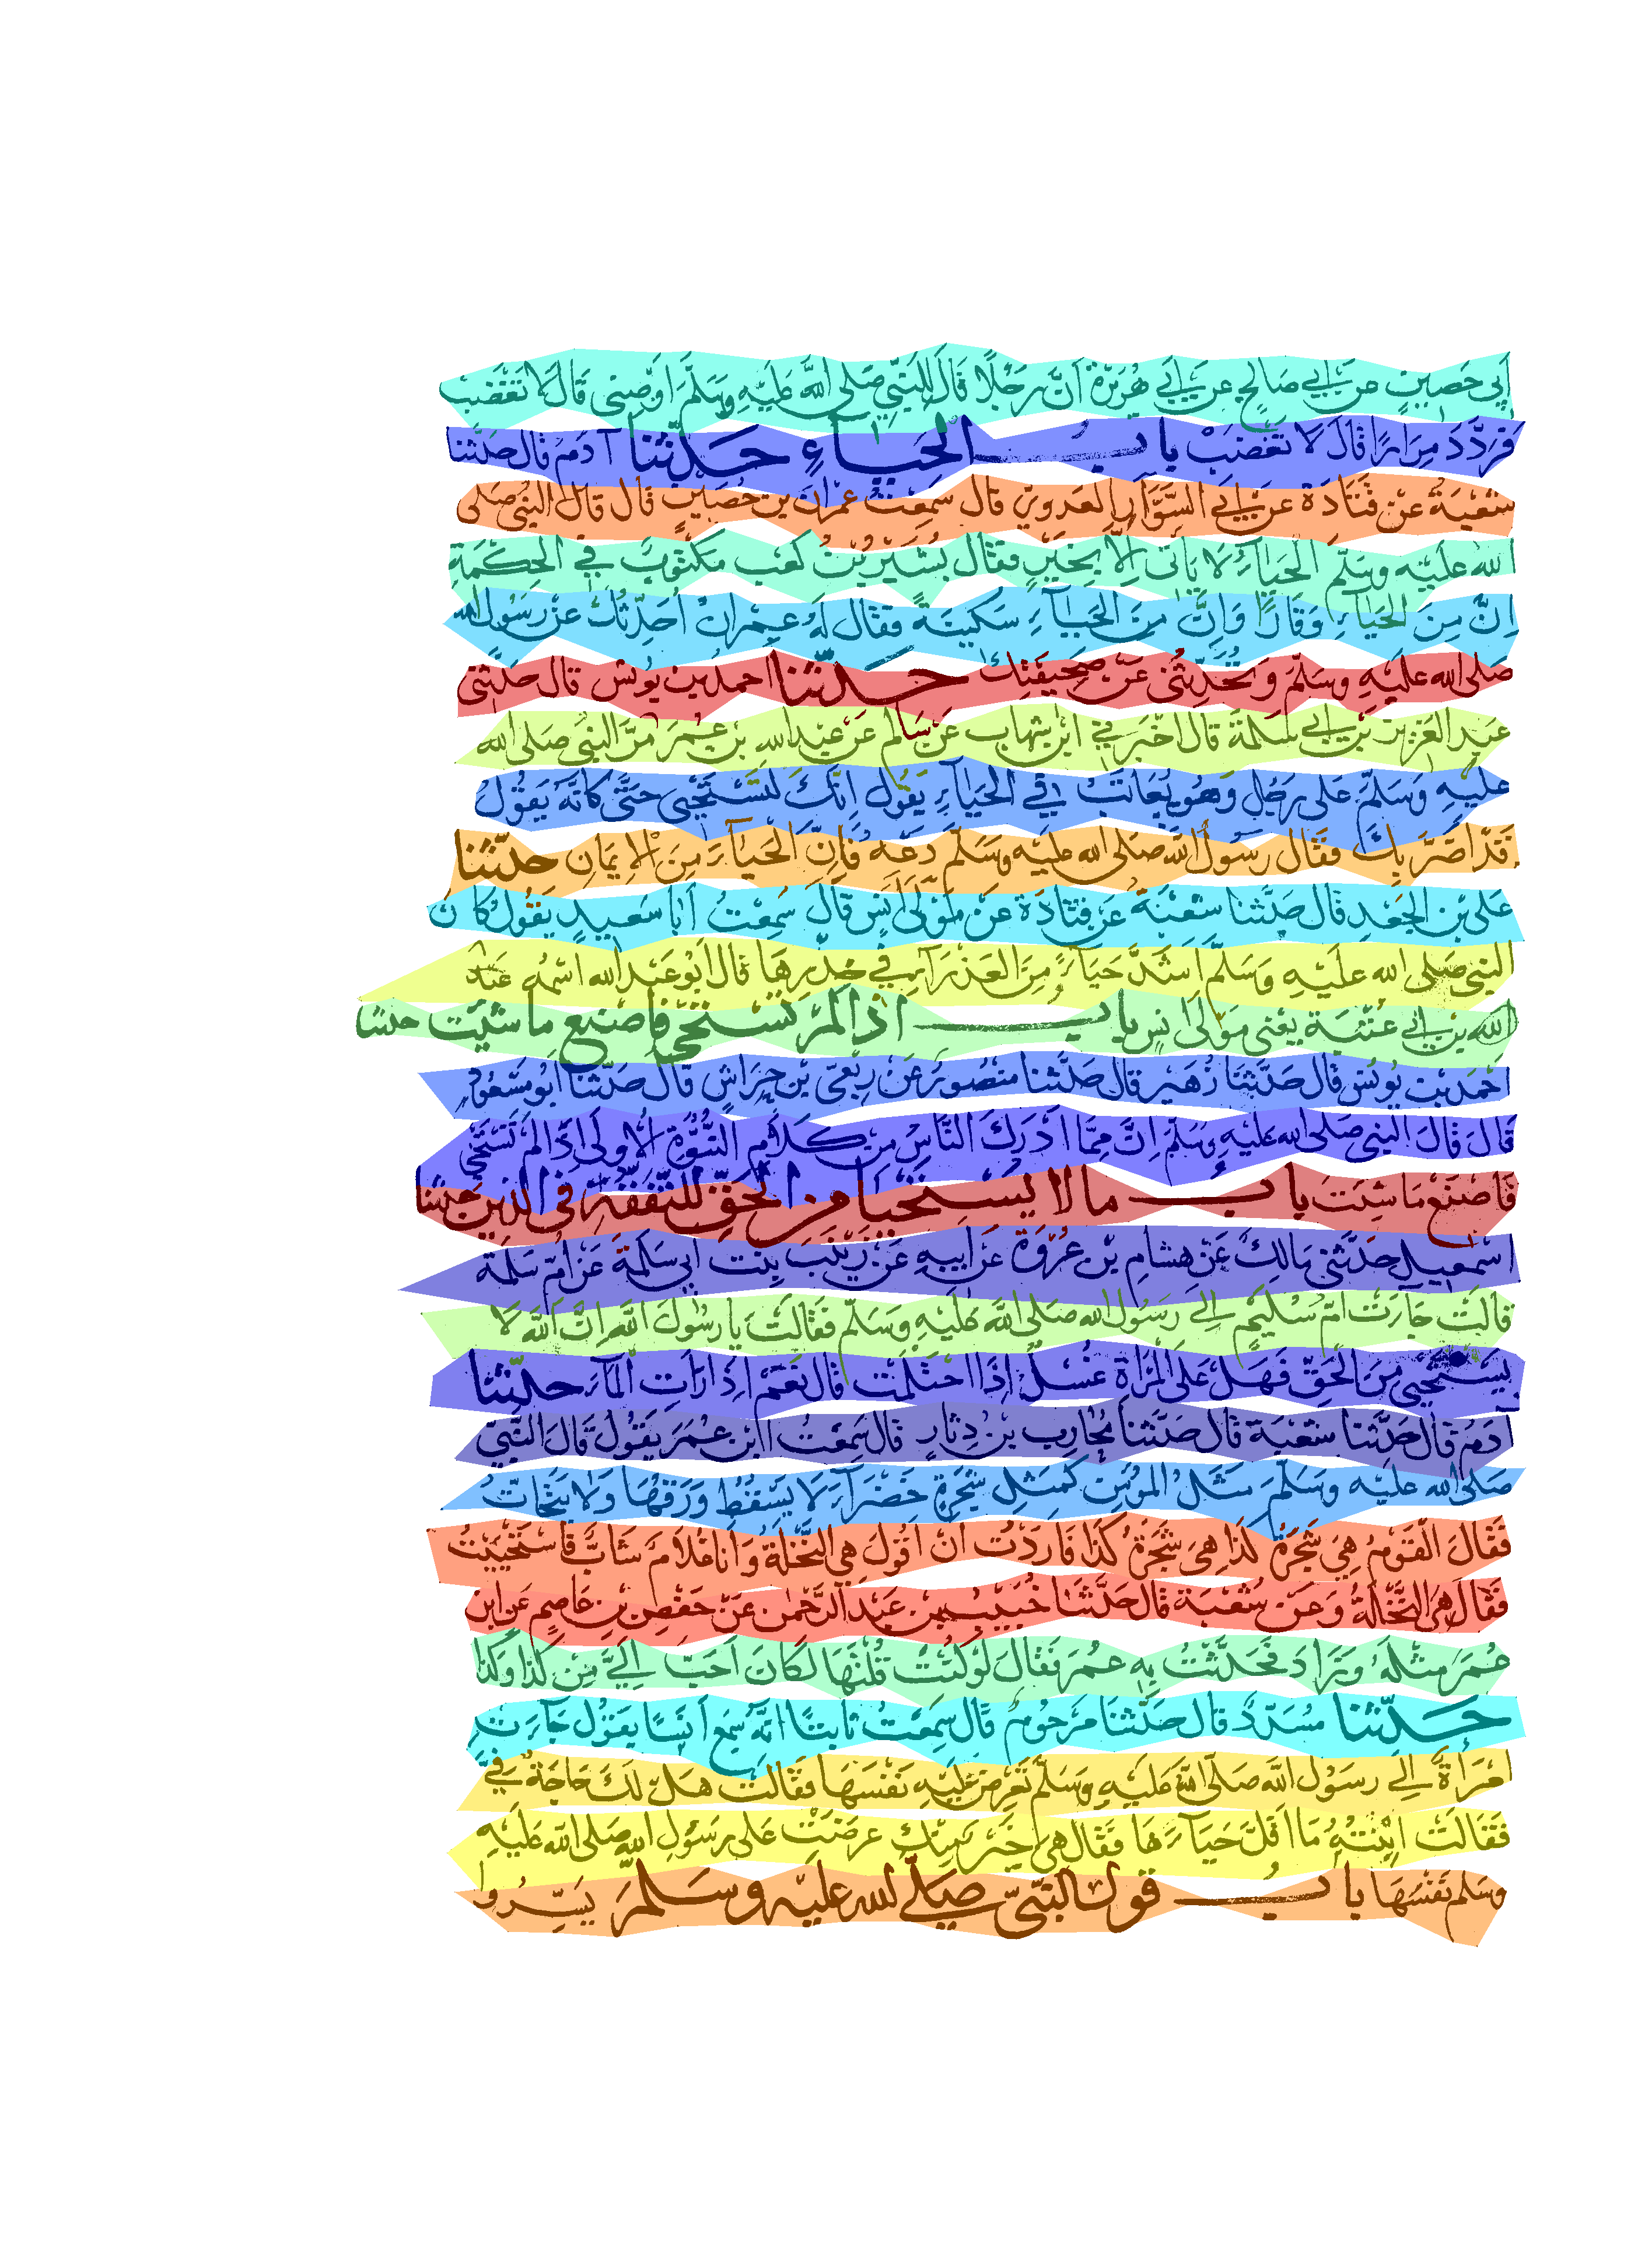 أَبِي حَصِينٍ عن أَبِي صَالِحٍ عن أبي هُرَيْرَةَ أَنَّ رَجُلًا قَالَ لِلنَّبِيِّ صَلى اللَّه عَلَيْهِ وَسَلَّمَ اَوْصِنِى قَالَ لَا تَغْضَبْ
فَرَدَّدَ مِرَارًا قَالَ لَا تَغْضَبْ باب الحَيَاءِ حَدَّثَنَا آدَمُ قال حَدَّثَنَا
شُعْبَةُ عَنْ قَتَادَةَ عن أَبِي السَّوَّارِ العَدَوِيِّ قال سَمِعْتُ عِمْرَانَ بن حُصَيْنٍ قَال قَالَ النبي صَلى
الله عَلَيْهِ وسَلَّمَ الحَيَاءُ لَا يَأْتِى اِلَّا بِخَيْرٍ فَقَالَ بُشَيْرُ بْنُ كَعْبٍ مَكْتُوبٌ فِي الحِكْمَةِ
اِنَّ مِنَ الحَيَاءِ وَقَارًا وَاِنَّ مِنَ الحَيَاءِ سَكِينَةً فَقَال لَهُ عِمْرَانُ اُحَدِّثُكَ عَنْ رَسُولِ الله
صَلى الله عَلَيْهِ وَسَلَّمَ وَتُحَدِّثُنِى عَنْ صَحِيفَتِكَ حَدَّثَنَا احمد بن يُونُسَ قال حَدَّثَنِى
عَبْد العَزِيز بن أبي سَلَمَةَ قَال اَخْبَرَنِي ابْن شِهَابٍ عَنْ سَالِم عَنْ عَبْدِ اللهِ بْنِ عُمَرَ مَرَّ النبي صَلى الله
عَلَيْهِ وَسَلَّمَ عَلَى رَجُلٍ وَهُوَ يُعَاتَبُ فِي الحَيَاءِ يَقُول اِنَّكَ لَتَسْتَحْيِى حَتَّى كَاَنَّهُ يَقُولُ
قَدْ اَضَرَّ بِكَ فَقَال رَسُولُ اللَّه صَلى الله عليه وَسَلَّمَ دَعْهُ فَاِنَّ الحَيَاءَ مِنَ الْاِيمَانِ حدّثنا
عَلى بْن الجَعْدِ قَال حَدَّثنا شُعْبَةُ عَنْ قَتَادَةَ عَنْ مَوْلَى اَنَسٍ قَالَ سَمِعْتُ اَبَا سَعِيدٍ يَقُولُ كَانَ
النبي صَلى الله عَلَيْهِ وَسَلَّمَ اَشَدَّ حَيَاءً مِنَ العَذْرَاءِ فِي خِدْرِهَا قَال اَبُو عَبْدِ الله اسْمُهُ عَبْدُ
الله بن أبي عُتْبَةَ يَعْنِى مَوْلَى اَنَسٍ باب اذا لَمْ تَسْتَحْيِ فاصْنَعْ ما شِئْتَ حدثنا
اَحْمَد بن يُونُسَ قَال حَدَّثَنَا زُهَيْر قَال حَدَّثَنَا مَنْصُورٌ عَنْ رِبْعِىِّ بْنِ حِرَاشٍ قَالَ حَدَّثَنَا اَبُو مَسْعُودٍ
قَالَ قَالَ النبي صَلى الله عَلَيْهِ وَسَلَّمَ اِنَّ مِمَّا اَدْرَكَ النَّاسُ مِنْ كَلَامِ النُّبُوَّةِ الْاُولَى اِذَا لَمْ تَسْتَحْيِ
فَاصْنَعْ مَا شِئْتَ باب ما لا يُسْتَحْيَا مِنَ الحَقِّ لِلتَّفَقُّهِ فى الدِّينِ حدثنا
اسْمعِيل حَدَّثَنِى مَالِكٌ عَنْ هِشَامِ بْنِ عُرْوَةَ عَنْ اَبِيهِ عَنْ زَيْنَبَ بِنْتِ اَبِي سَلَمَةَ عَنْ اُمِّ سَلَمَةَ
قَالَتْ جَاءَتْ اُمُّ سُلَيْمٍ اِلى رَسُول الله صَلى اللَّه عَلَيْهِ وَسَلَّم فَقَالَتْ يَا رَسُولَ اللَّهِ اِنَّ اللَّهَ لَا
يَسْتَحْيِى مِنَ الحَقِّ فَهَلْ عَلَى المَرْاَةِ غُسْلٌ اِذَا احْتَلَمَتْ قَالَ نَعَمْ اِذَا رَاَتِ المَاءَ حدّثنا
آدَمُ قَال حَدَّثَنَا شُعْبَةُ قَال حَدَّثَنَا مُحَارِب بْنُ دِثَارٍ قَال سَمِعْتُ ابْنَ عُمَرَ يَقُولُ قَالَ النَّبِيُّ
صَلى الله عليه وَسَلَّمَ مَثَلُ المُؤْمِنِ كَمَثَلِ شَجَرَةٍ خَضْرَاءَ لَا يَسْقُطُ وَرَقُهَا وَلَا يَتَحَاتُّ
فَقَالَ القَوْمُ هِيَ شَجَرَةُ كَذَا هِىَ شَجَرَةُ كَذَا فَاَرَدْتُ اَنْ اَقُولَ هِيَ النَّخْلَةُ وَاَنَا غُلَامٌ شَابٌّ فَاسْتَحْيَيْتُ
فَقَالَ هِىَ النَّخْلَةُ وَعَنْ شُعْبَةَ قَال حَدَّثَنَا خُبَيْب بن عَبْدِ الرَّحْمٰنِ عَنْ حَفْصِ بْنِ عَاصِمٍ عَن ابْنِ
عُمَرَ مِثْلَهُ وَزَادَ فَحَدَّثْتُ بِهِ عُمَرَ فَقَالَ لَوْ كُنْتَ قُلْتَهَا لَكَانَ اَحَبَّ اِلَيَّ مِن كَذَا وَكَذَا
حَدَّثَنَا مُسَدَّدٌ قَال حَدَّثَنَا مَرْحُومٌ قَال سَمِعْتُ ثَابِتًا اَنَّهُ سَمِعَ اَنَسًا يَقُول جَاءَت
امْرَاَةٌ اِلى رَسُول اللَّه صَلَّى اللَّه عَلَيْهِ وَسَلَّمَ تَعْرِضُ عَلَيْهِ نَفْسَهَا فَقَالَتْ هَلْ لَكَ حَاجَةٌ فِيَّ
فَقَالَتْ ابْنَتُهُ مَا اَقَلَّ حَيَاءَهَا فَقَال هِىَ خَيْر مِنْكِ عَرَضَتْ عَلى رَسُولِ اللهِ صَلى الله عَلَيْهِ
وَسَلم نَفْسَهَا باب قول النَّبِيِّ صَلّى الله عليه وسَلمَ يَسِّرُوا